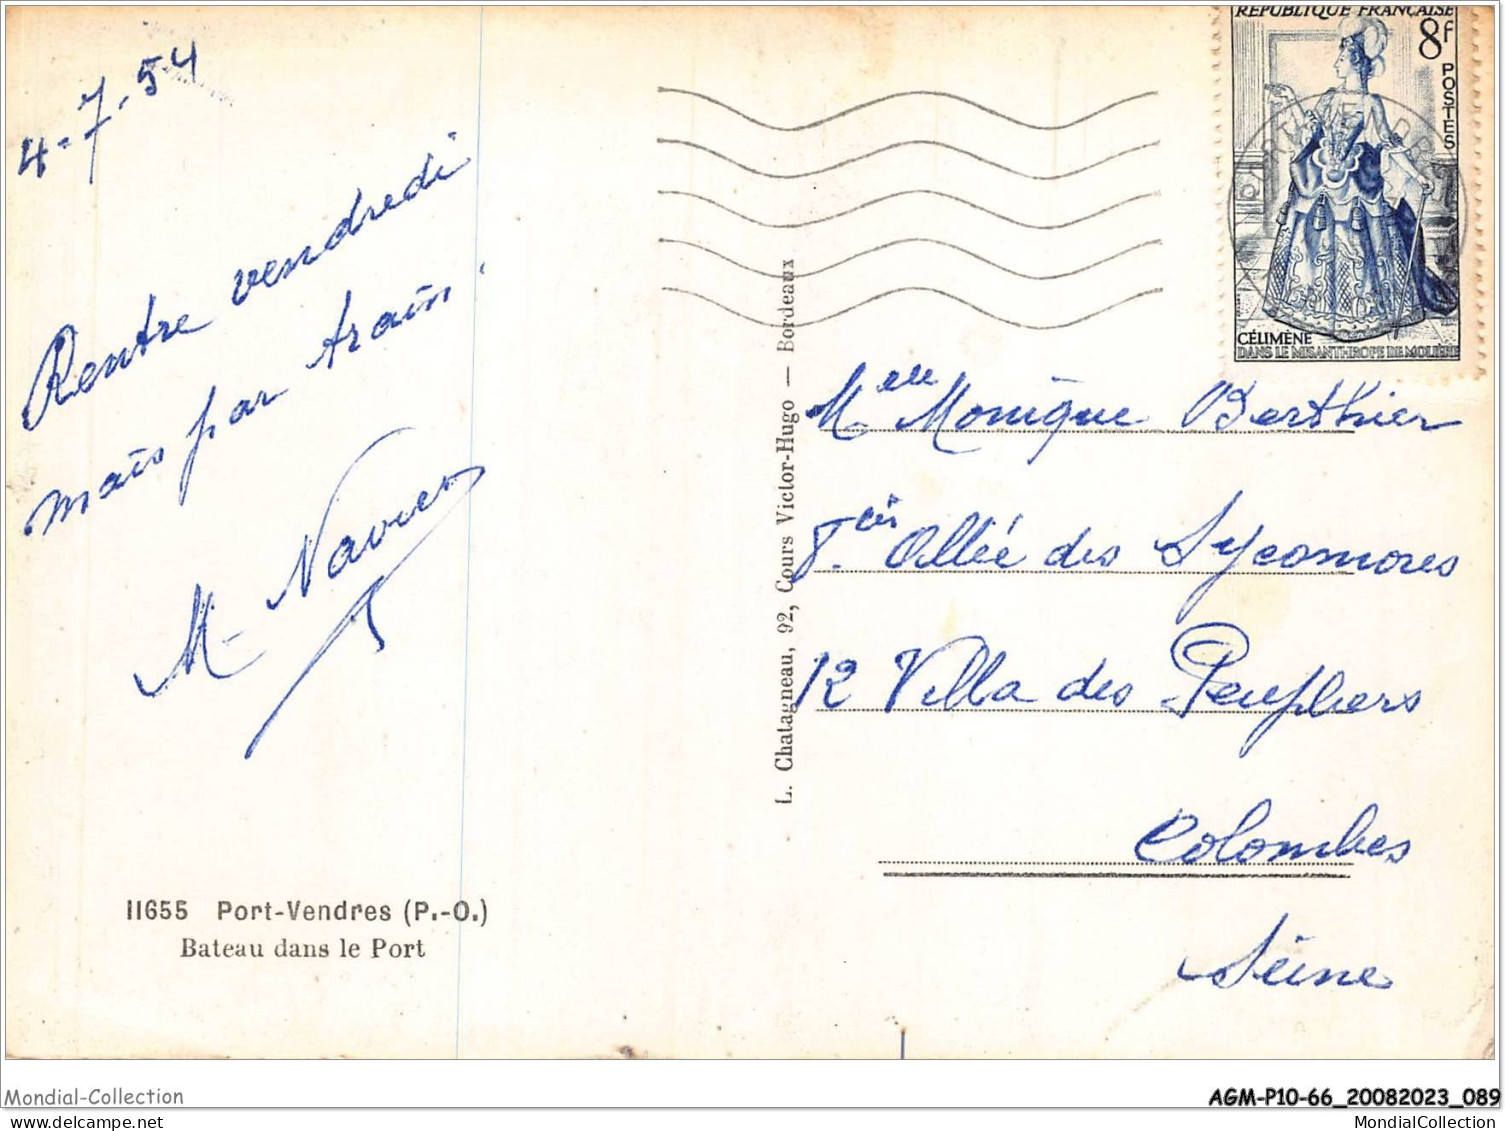 4-7-54
Rentre vendredi
mais par train.
M. Navier
11655 Port-Vendres (P.-O.)
Bateau dans le Port
L. Chatagneau, 92, Cours Victor-Hugo — Bordeaux
REPUBLIQUE FRANÇAISE
8f
POSTES
CÉLIMÈNE
DANS LE MISANTHROPE DE MOLIÈRE
Melle Monique Berthier
Allée des Sycomores
12 Villa des Peupliers
Colombes
Seine
Mondial-Collection
AGM-P10-66_20082023_089
MondialCollection